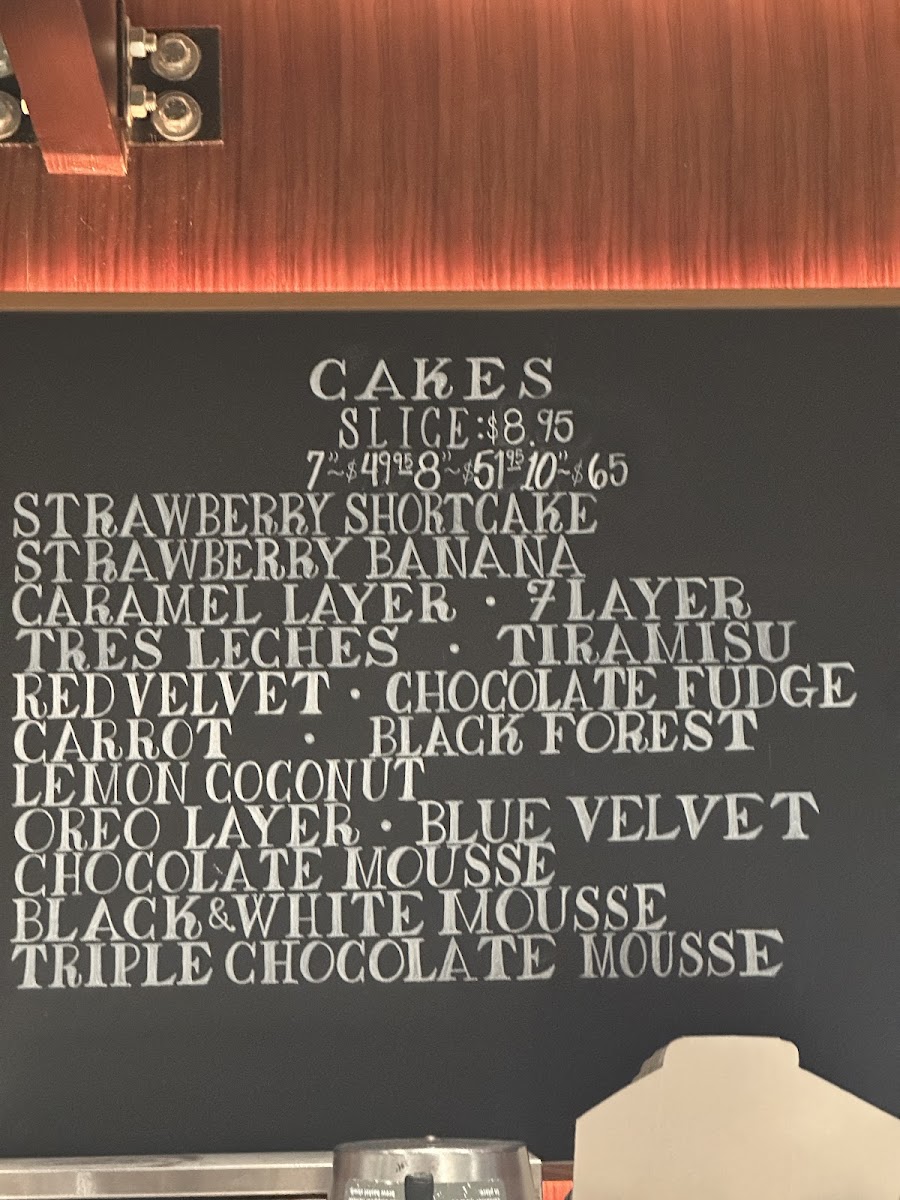 CAKES
SLICE:$8.95
7"~$49.95 8"~$51.95 10"~$65
STRAWBERRY SHORTCAKE
STRAWBERRY BANANA
CARAMEL LAYER · 7 LAYER
TRES LECHES · TIRAMISU
RED VELVET · CHOCOLATE FUDGE
CARROT · BLACK FOREST
LEMON COCONUT
OREO LAYER · BLUE VELVET
CHOCOLATE MOUSSE
BLACK&WHITE MOUSSE
TRIPLE CHOCOLATE MOUSSE